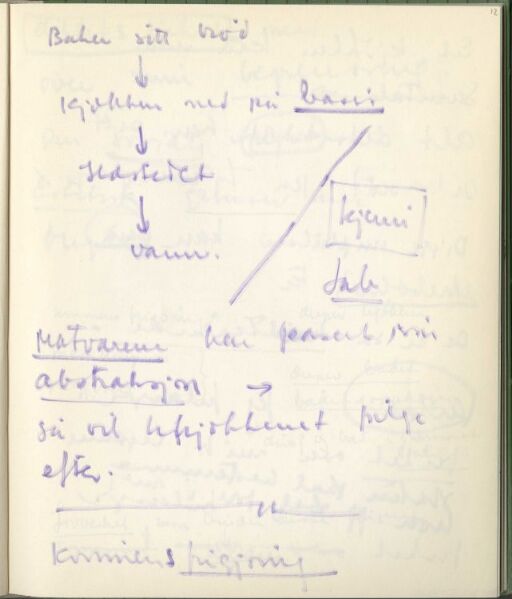 12
Baker sitt brød
↓
Kjøkken ned på basis
↓
↓
kjemi
vann.
Lab
Matvarene har passert sin
abstraksjon →
så vil kjøkkenet følge
efter.
Kvinnens frigjøring